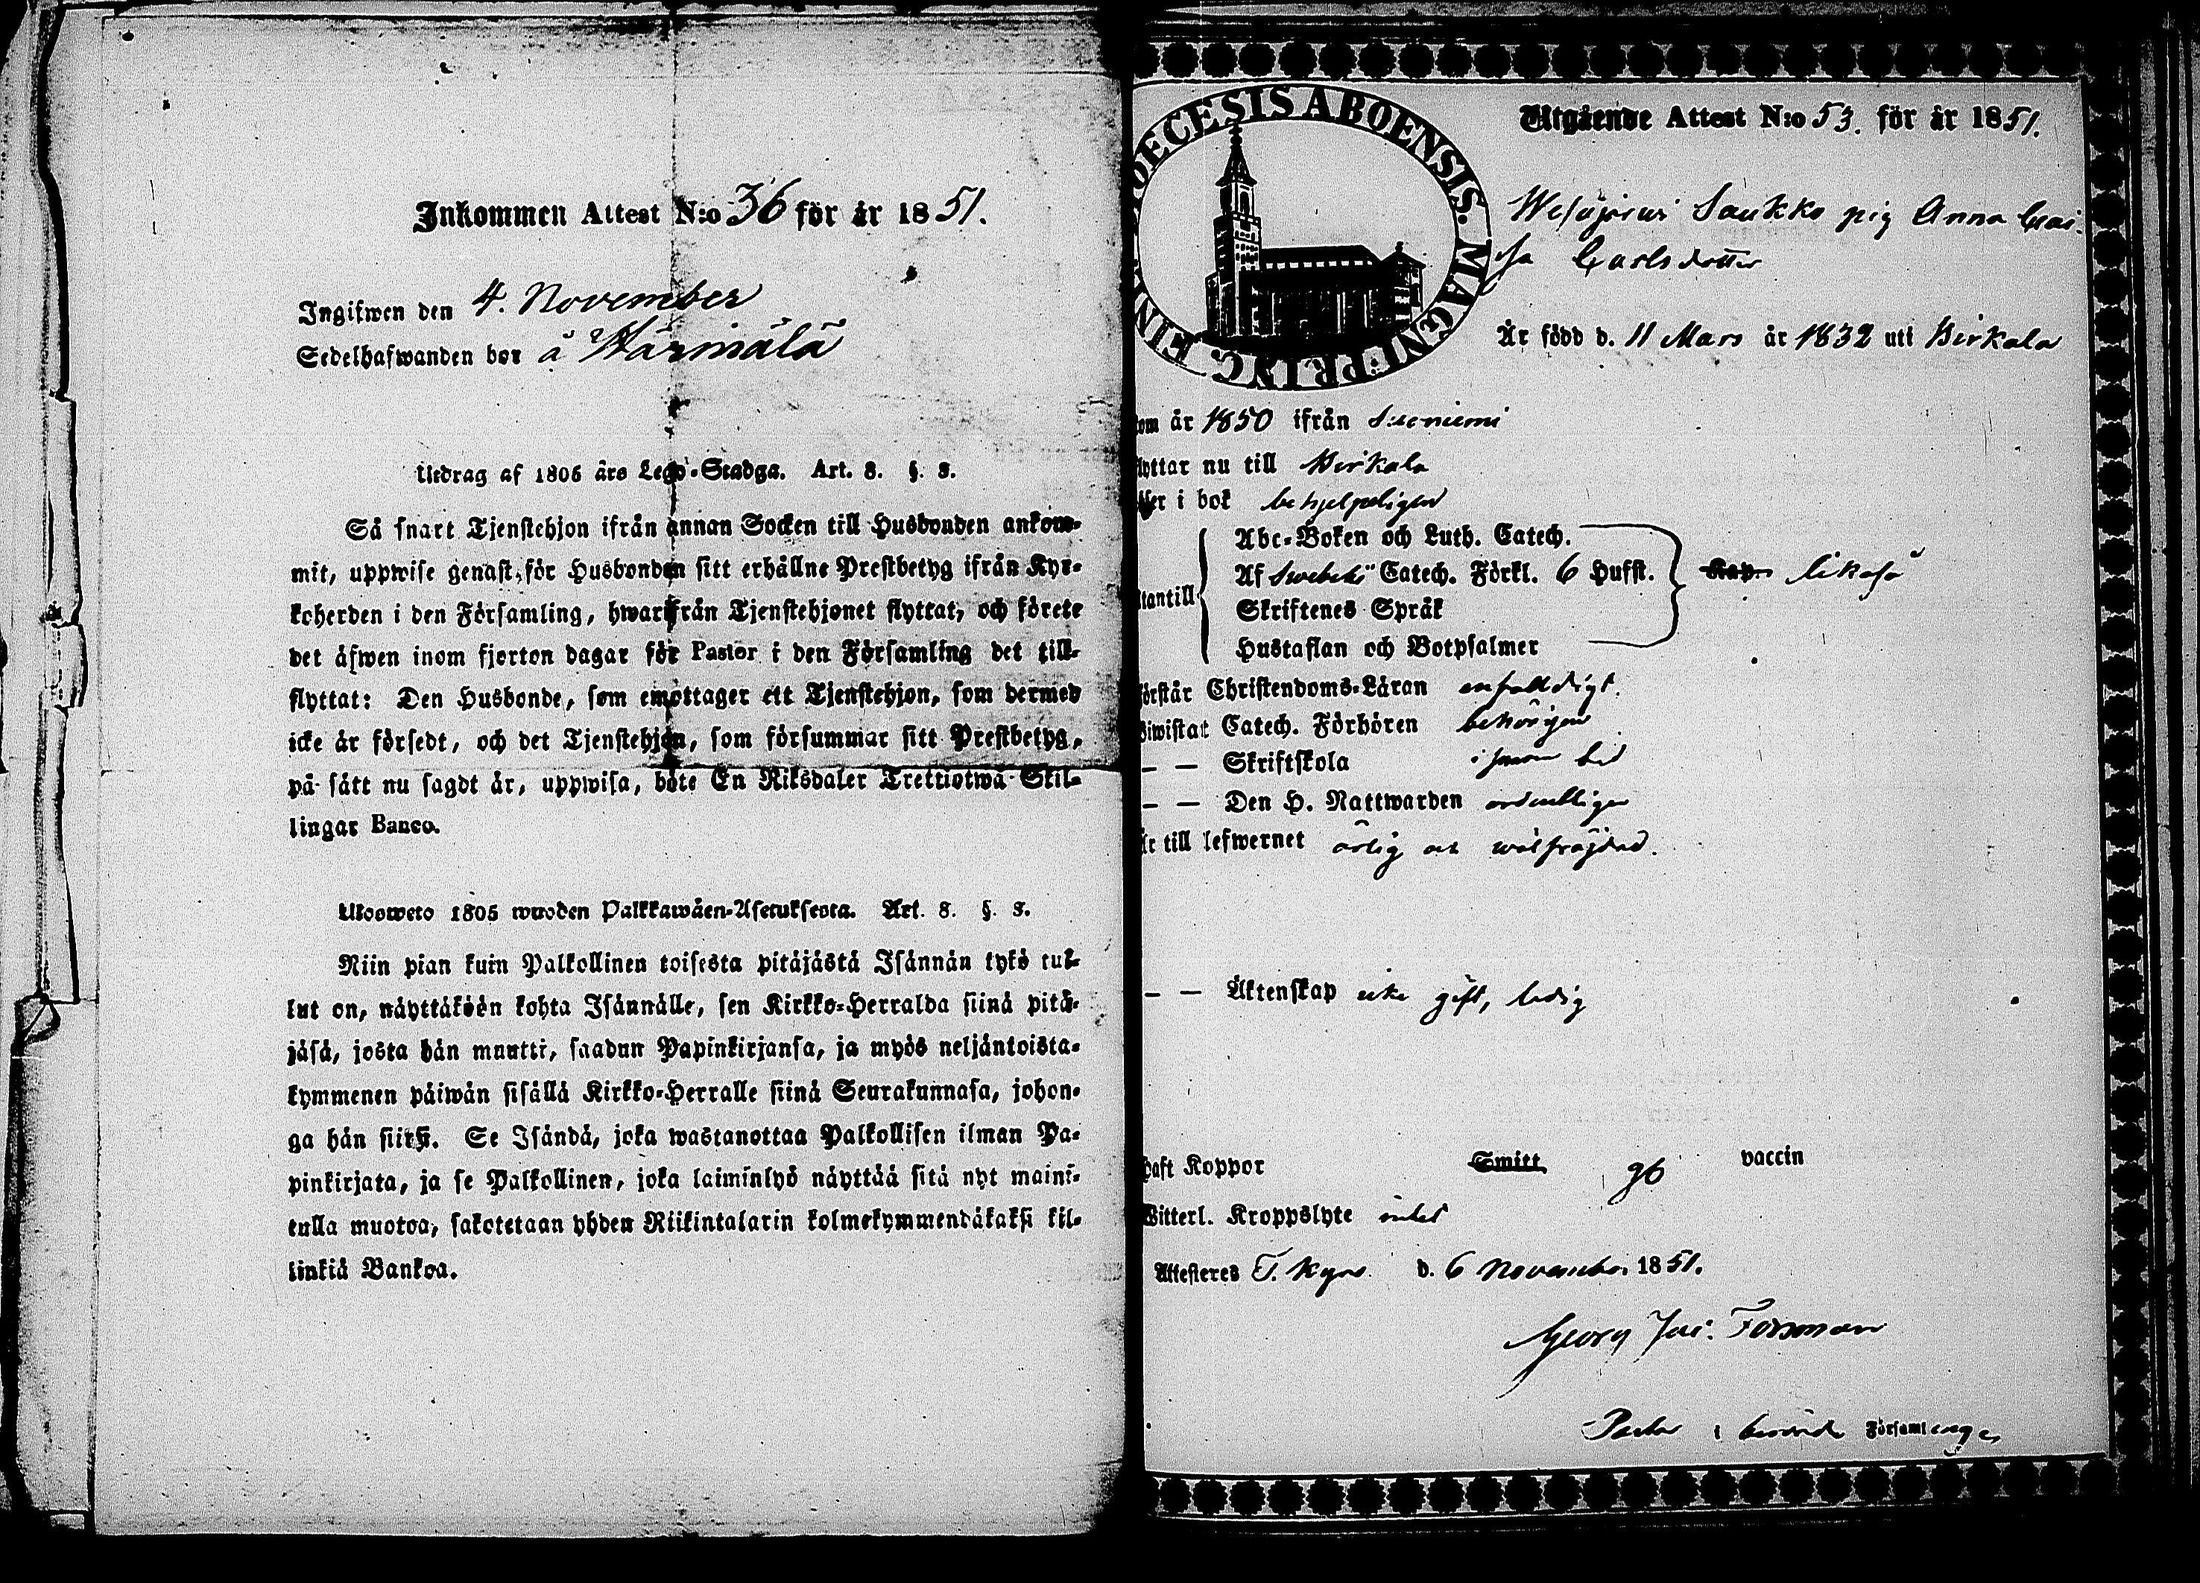 Inkommen Attest N:o 36 för år 1851.
Ingifwen den 4. November
Sedelhafwanden bor å Härmälä
Utdrag af 1805 års Lego-Stadga. Art. 8. §. 8.
Så snart Tjenstehjon ifrån annan Socken till Husbonden ankom-
mit, uppwise genast för Husbonden sitt erhållne Prestbetyg ifrån Kyr-
koherden i den Församling, hwarifrån Tjenstehjonet flyttat, och förete
det äfwen inom fjorton dagar för Pastor i den Församling det till-
flyttat: Den Husbonde, som emottager ett Tjenstehjon, som dermed
icke är försedt, och det Tjenstehjon, som försummar sitt Prestbetyg,
på sätt nu sagdt är, uppwisa, böte En Riksdaler Trettiotwå Skil-
lingar Banco.
Ulosweto 1805 wuoden Palkkawäen-Asetuksesta. Art. 8. §. 8.
Niin pian kuin Palkollinen toisesta pitäjästä Isännän tykö tul-
lut on, näyttäköön kohta Isännälle, sen Kirkko-Herralda siinä pitä-
jäsä, josta hän muutti, saadun Papinkirjansa, ja myös neljäntoista-
kymmenen päiwän sisällä Kirkko-Herralle siinä Seurakunnasa, johon-
ga hän siirsi. Se Isändä, joka wastanottaa Palkollisen ilman Pa-
pinkirjata, ja se Palkollinen, joka laiminlyö näyttää sitä nyt maini-
tulla muotoa, sakotetaan yhden Riikintalarin kolmekymmendäkaksi kil-
linkiä Bankoa.
DIOECESIS ABOENSIS. MAGNI PRINC. FINL.
Utgående Attest N:o 53. för år 1851.
Wesajärwi Saukko pig Anna Cai-
sa Carlsdotter
Är född d. 11 Mars år 1832 uti Birkala
kom år 1850 ifrån Suoniemi
flyttar nu till Birkala
läser i bok behjelpeligen
utantill
Abc-Boken och Luth. Catech.
Af Swebelii Catech. Förkl. 6 Hufst. likaså
Skriftenes Språk
Hustaflan och Botpsalmer
förstår Christendoms-Läran enfaldigt.
Biwistat Catech. Förhören behörigen
— — Skriftskola i sinom tid
— — Den H. Nattwarden ordentligen
Är till lefwernet ärlig och wälfräjdad.
— — Äktenskap icke gift, ledig
haft Koppor Smitt gb vaccin
Witterl. Kroppslyte intet
Attesteres T. Kyro d. 6 November 1851.
Georg Jac. Forsman
Pastor i berörde Församlingen